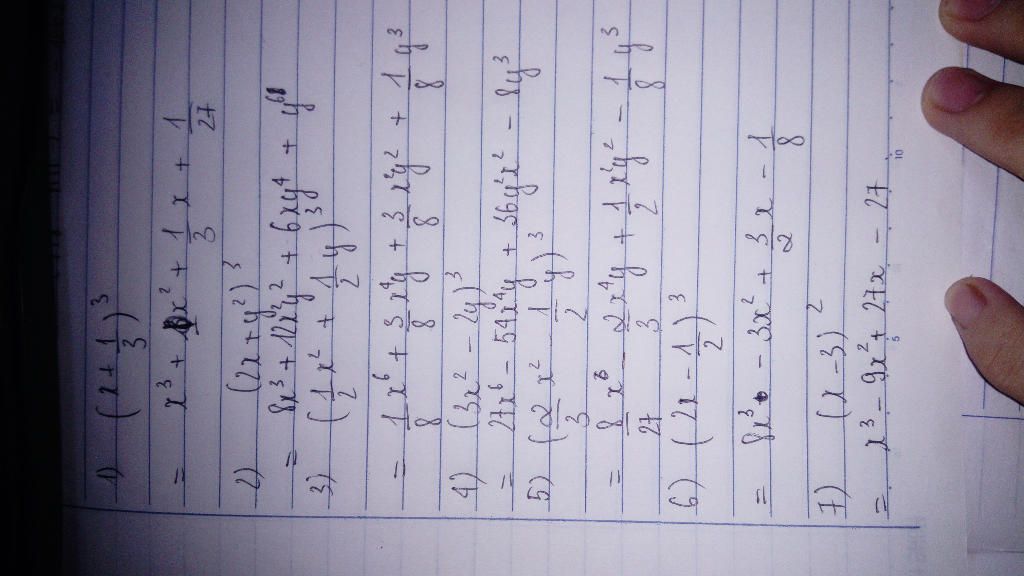 1) (x + 1/3)³
= x³ + x² + 1/3 x + 1/27
2) (2x + y²)³
= 8x³ + 12x²y² + 6xy⁴ + y⁶
3) (1/2 x² + 1/2 y)³
= 1/8 x⁶ + 3/8 x⁴y + 3/8 x²y² + 1/8 y³
4) (3x² - 2y)³
= 27x⁶ - 54x⁴y + 36y²x² - 8y³
5) (2/3 x² - 1/2 y)³
= 8/27 x⁶ - 2/3 x⁴y + 1/2 x²y² - 1/8 y³
6) (2x - 1/2)³
= 8x³ - 3x² + 3/2 x - 1/8
7) (x - 3)²
= x³ - 9x² + 27x - 27
5 10